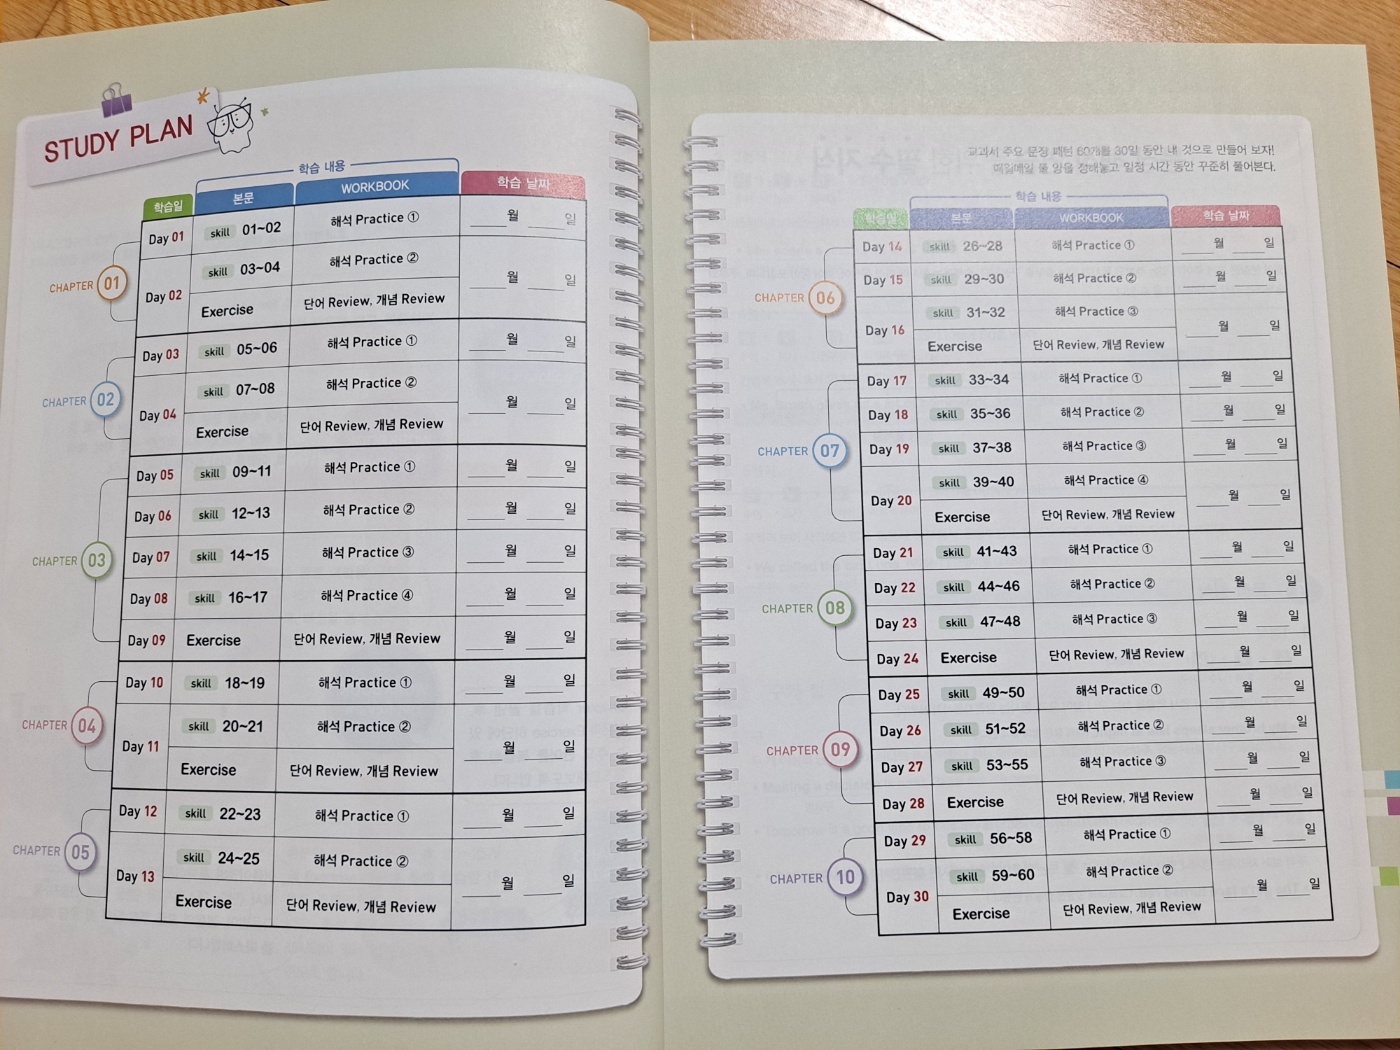 STUDY PLAN
학습 내용
학습일 본문 WORKBOOK 학습 날짜
CHAPTER 01
Day 01 skill 01~02 해석 Practice ① 월 일
Day 02 skill 03~04 해석 Practice ② 월 일
Exercise 단어 Review, 개념 Review
CHAPTER 02
Day 03 skill 05~06 해석 Practice ① 월 일
Day 04 skill 07~08 해석 Practice ② 월 일
Exercise 단어 Review, 개념 Review
CHAPTER 03
Day 05 skill 09~11 해석 Practice ① 월 일
Day 06 skill 12~13 해석 Practice ② 월 일
Day 07 skill 14~15 해석 Practice ③ 월 일
Day 08 skill 16~17 해석 Practice ④ 월 일
Day 09 Exercise 단어 Review, 개념 Review 월 일
CHAPTER 04
Day 10 skill 18~19 해석 Practice ① 월 일
Day 11 skill 20~21 해석 Practice ② 월 일
Exercise 단어 Review, 개념 Review
CHAPTER 05
Day 12 skill 22~23 해석 Practice ① 월 일
Day 13 skill 24~25 해석 Practice ② 월 일
Exercise 단어 Review, 개념 Review
교과서 주요 문장 패턴 60개를 30일 동안 내 것으로 만들어 보자!
매일매일 풀 양을 정해놓고 일정 시간 동안 꾸준히 풀어본다.
학습 내용
학습일 본문 WORKBOOK 학습 날짜
CHAPTER 06
Day 14 skill 26~28 해석 Practice ① 월 일
Day 15 skill 29~30 해석 Practice ② 월 일
Day 16 skill 31~32 해석 Practice ③ 월 일
Exercise 단어 Review, 개념 Review
CHAPTER 07
Day 17 skill 33~34 해석 Practice ① 월 일
Day 18 skill 35~36 해석 Practice ② 월 일
Day 19 skill 37~38 해석 Practice ③ 월 일
Day 20 skill 39~40 해석 Practice ④ 월 일
Exercise 단어 Review, 개념 Review
CHAPTER 08
Day 21 skill 41~43 해석 Practice ① 월 일
Day 22 skill 44~46 해석 Practice ② 월 일
Day 23 skill 47~48 해석 Practice ③ 월 일
Day 24 Exercise 단어 Review, 개념 Review 월 일
CHAPTER 09
Day 25 skill 49~50 해석 Practice ① 월 일
Day 26 skill 51~52 해석 Practice ② 월 일
Day 27 skill 53~55 해석 Practice ③ 월 일
Day 28 Exercise 단어 Review, 개념 Review 월 일
CHAPTER 10
Day 29 skill 56~58 해석 Practice ① 월 일
Day 30 skill 59~60 해석 Practice ② 월 일
Exercise 단어 Review, 개념 Review